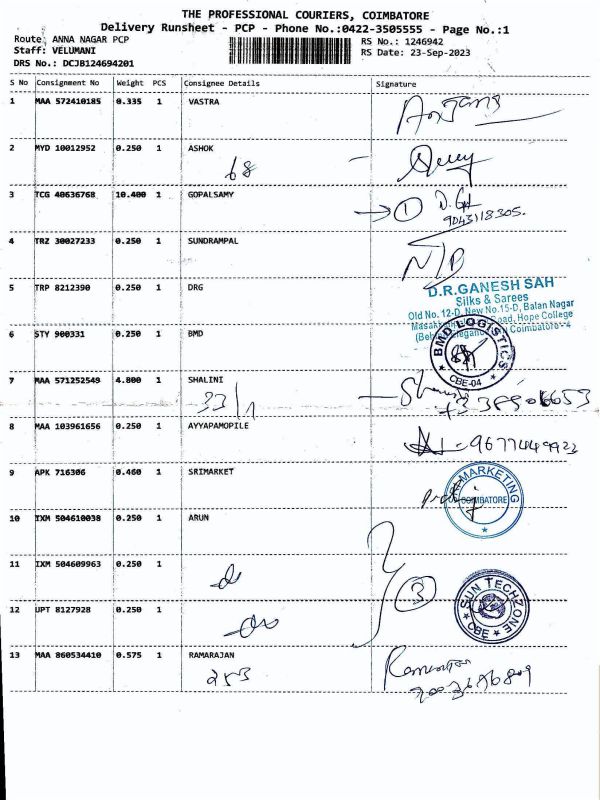 THE PROFESSIONAL COURIERS, COIMBATORE
Delivery Runsheet - PCP - Phone No.:0422-3505555 - Page No.:1
Route: ANNA NAGAR PCP
RS No.: 1246942
Staff: VELUMANI
RS Date: 23-Sep-2023
DRS No.: DCJB124694201
S No Consignment No Weight PCS Consignee Details Signature
1 MAA 572410185 0.335 1 VASTRA
2 MYD 10012952 0.250 1 ASHOK
68
3 TCG 40636768 10.400 1 GOPALSAMY
1
9043118305.
4 TRZ 30027233 0.250 1 SUNDRAMPAL
N/D
5 TRP 8212390 0.250 1 DRG
D.R.GANESH SAH
Silks & Sarees
Old No. 12-D, New No.15-D, Balan Nagar
Road, Hope College
Coimbatore-4
6 STY 900331 0.250 1 BMD
BMD LOGISTICS
CBE-04
7 MAA 571252549 4.800 1 SHALINI
33/1
8 MAA 103961656 0.250 1 AYYAPAMOPILE
9 APK 716306 0.460 1 SRIMARKET
MARKETING
COIMBATORE
10 IXM 504610038 0.250 1 ARUN
11 IXM 504609963 0.250 1
do
3
SUN TECHZONE
CBE
12 UPT 8127928 0.250 1
do
13 MAA 860534410 0.575 1 RAMARAJAN
253